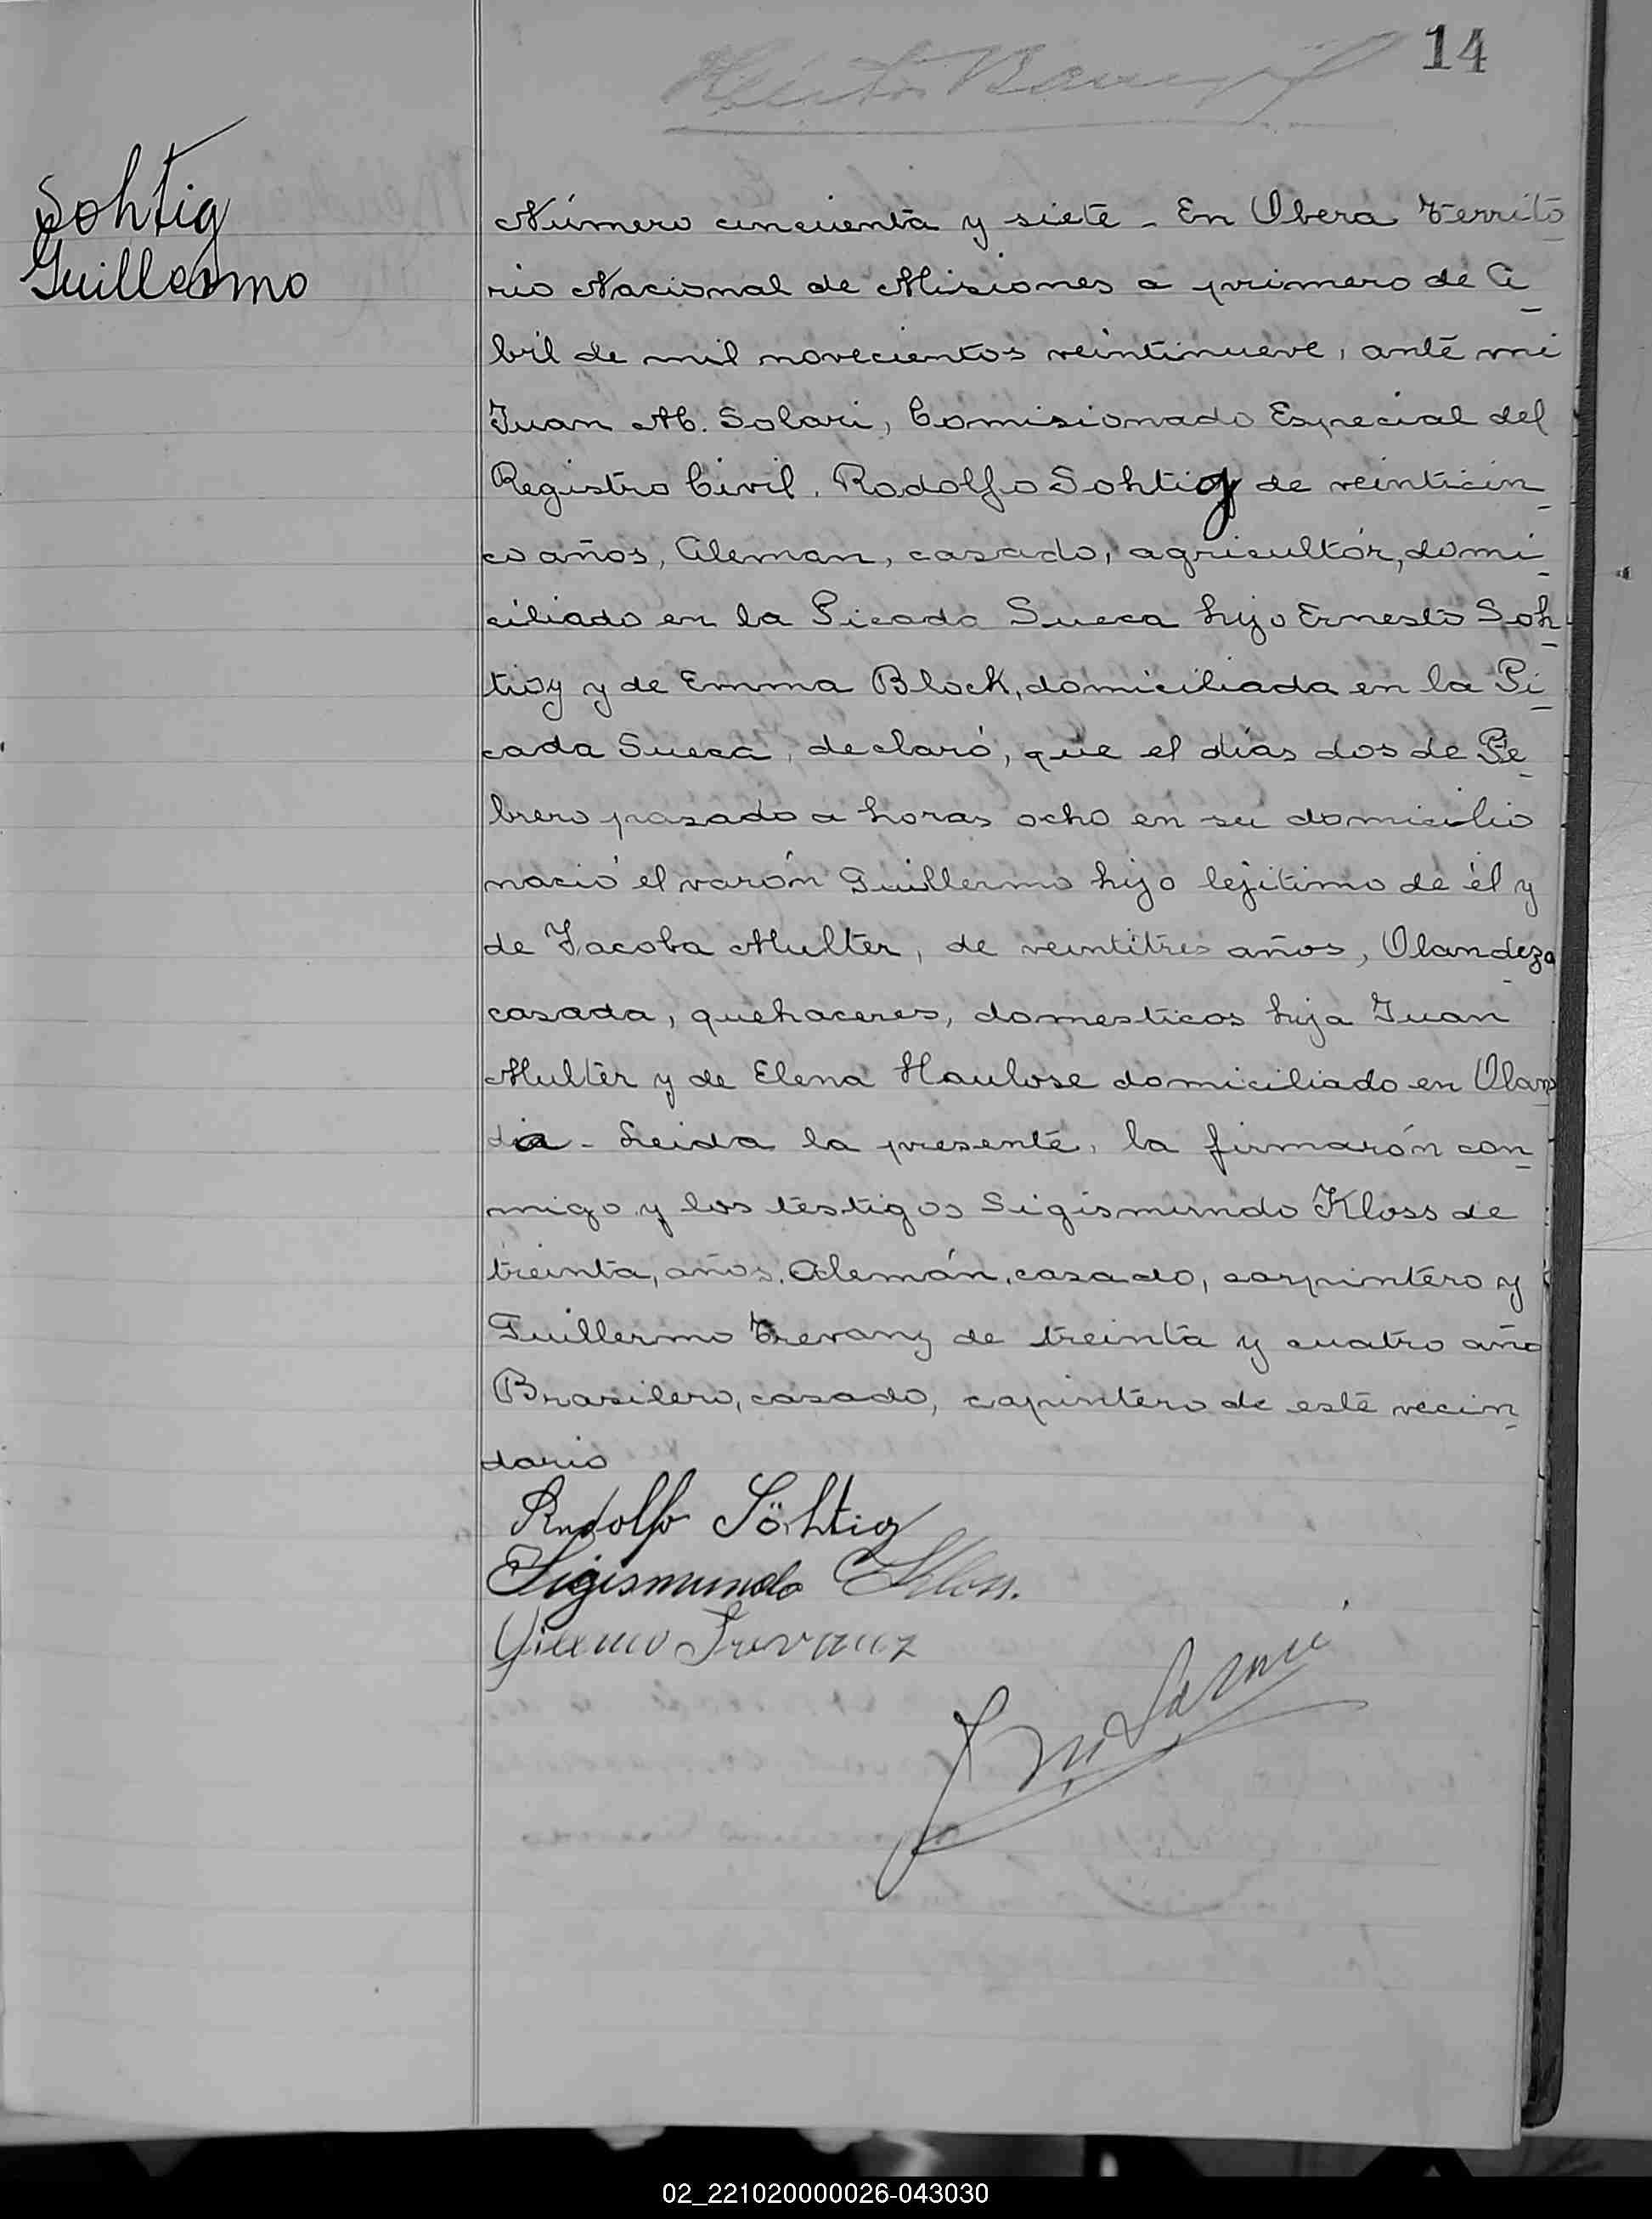 14
Sohtig
Guillermo
Número cincuenta y siete - En Obera Territo
rio Nacional de Misiones a primero de A
bril de mil novecientos veintinueve, ante mi
Juan M. Solari, Comisionado Especial del
Registro Civil. Rodolfo Sohtig de veinticin
co años, Aleman, casado, agricultór, domi
ciliado en la Picada Sueca hijo Ernesto Soh
tig y de Emma Block, domiciliada en la Pi
cada Sueca, declaró, que el días dos de Fe
brero pasado a horas ocho en su domicilio
nació el varón Guillermo hijo lejitimo de él y
de Jacoba Multer, de veintitres años, Olandeza
casada, quehaceres, domesticos hija Juan
Multer y de Elena Haulose domiciliado en Olan
dia - Leida la presente, la firmarón con
migo y los testigos Sigismundo Kloss de
treinta, años, Alemán, casado, carpintero y
Guillermo Trevanz de treinta y cuatro año
Brasilero, casado, capintero de este vecin
dario
Rodolfo Söhtig
Sigismundo Kloss.
Trevanz
02_221020000026-043030